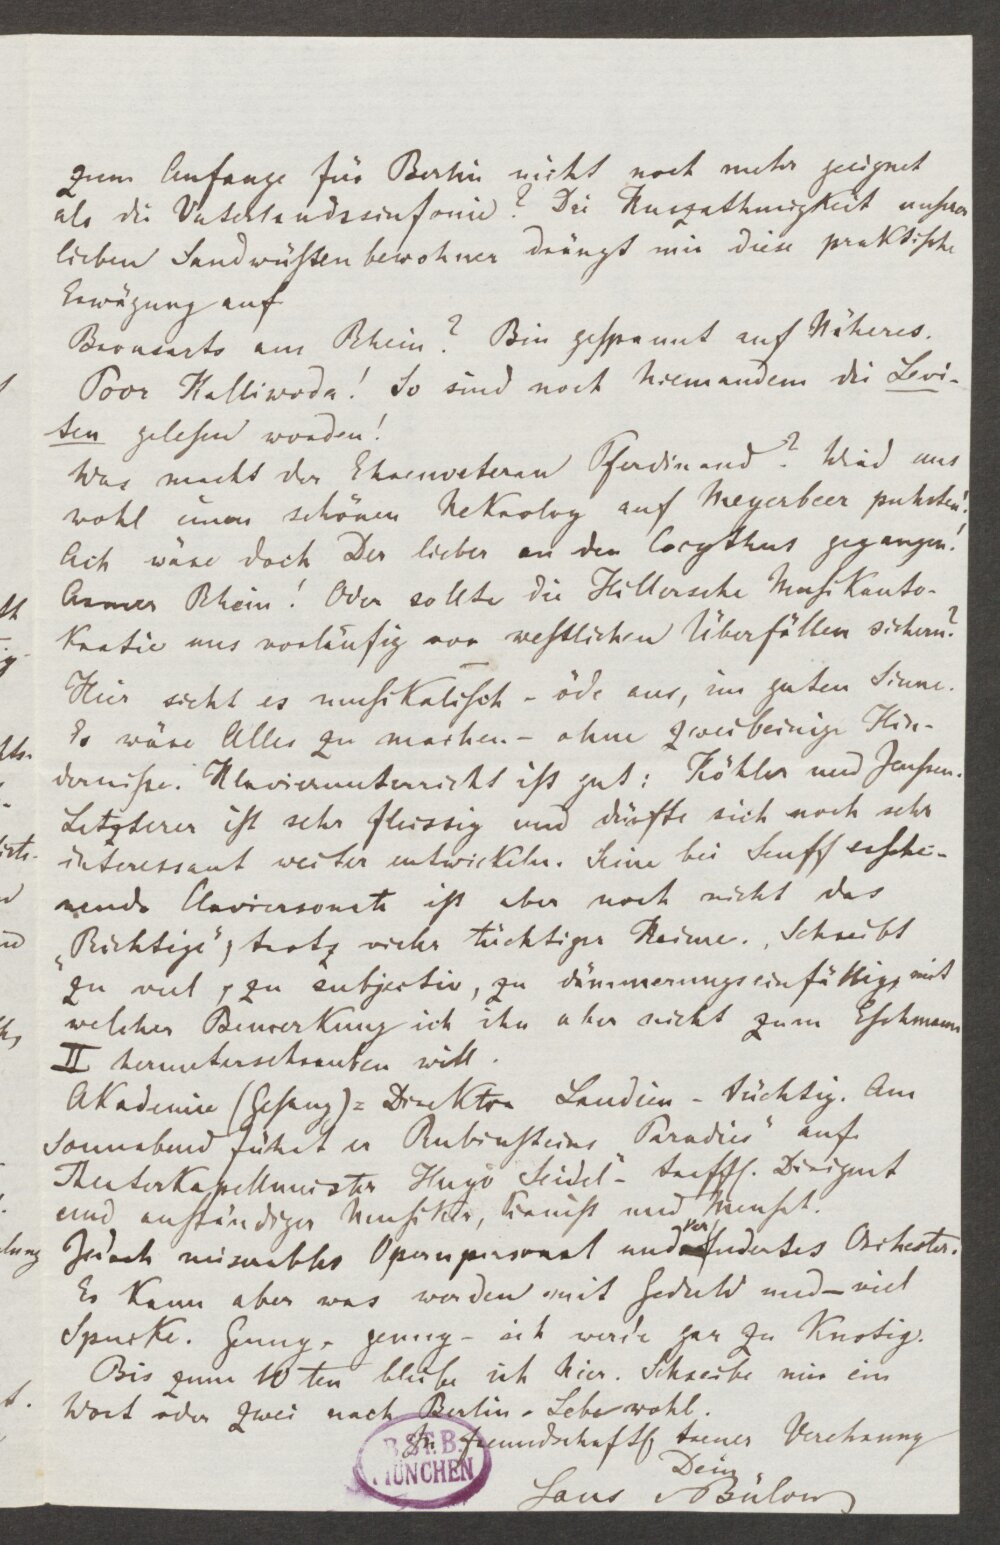 zum Anfange für Berlin nicht noch mehr geeignet
als die Vaterlandssinfonie? Die Kurzathmigkeit unserer
lieben Sandwüstenbewohner drängt mir diese praktische
Erwägung auf
Bronsarts am Rhein? Bin gespannt auf Näheres.
Poor Kalliwoda! So sind noch Niemandem die Levi-
ten gelesen worden!
Was macht der Ehrenveteran Pferdinand? Wird uns
wohl einen schönen Nekrolog auf Meyerbeer puhsten!
Ach wäre doch Der lieber an den Cocythus gegangen!
Armer Rhein! Oder sollte die Hillersche Musikauto-
kratie uns vorläufig vor westlichen Überfällen sichern?
Hier sieht es musikalisch-öde aus, im guten Sinne.
Es wäre Alles zu machen – ohne zweibeinige Hin-
dernisse. Klavierunterricht ist gut: Köhler und Jensen.
Letzterer ist sehr fleissig und dürfte sich noch sehr
interessant weiter entwickeln. Seine bei Senff erschei-
nende Claviersonate ist aber noch nicht das
„Richtige“, trotz vieler tüchtiger Keime. Schreibt
zu viel, zu subjectiv, zu dämmerungseinfällig, mit
welcher Bemerkung ich ihn aber nicht zum Eschmann
II herunterschrauben will.
Akademie (Gesang)=Direktor Laudien – tüchtig. Am
Sonnabend führt er Rubinsteins „Paradies“ auf.
Theaterkapellmeister Hugo Seidel – treffl. Dirigent
und anständiger Musiker, Pianist und Mensch.
Jedoch miserables Opernpersonal und verludertes Orchester.
Es kann aber was werden mit Geduld und – viel
Spucke. Genug – genug – ich werde gar zu knotig.
Bis zum 10ten bleibe ich hier. Schreibe mir ein
Wort oder zwei nach Berlin. Lebe wohl.
In freundschaftl. treuer Verehrung
Dein
Hans v Bülow
B.ST.B.
MÜNCHEN